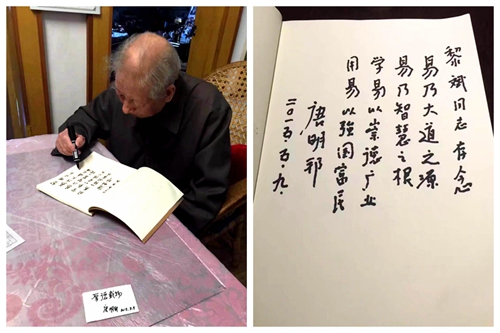 黎斌同志存念
易乃大道之源
易乃智慧之根
学易以崇德广业
用易以强国富民
唐明邦
二〇一五·五·九·